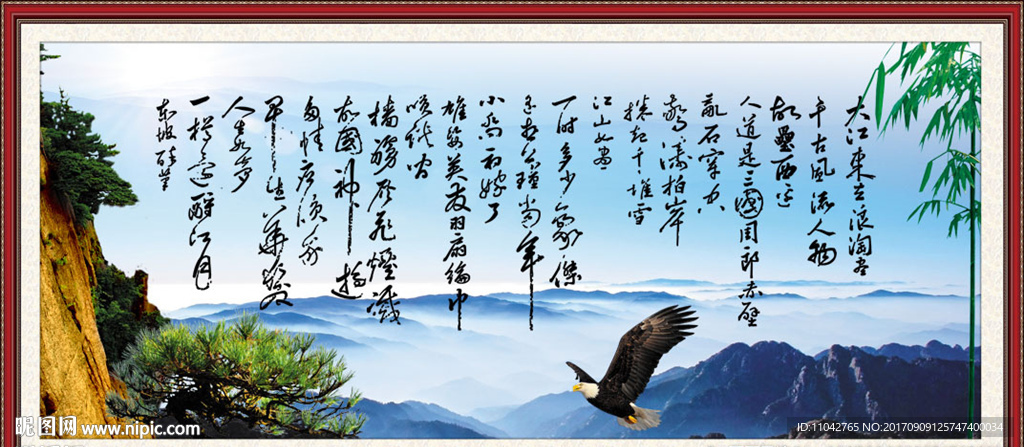 大江东去浪淘尽
千古风流人物
故垒西边
人道是三國周郎赤壁
乱石穿空
惊涛拍岸
捲起千堆雪
江山如画
一时多少豪傑
遥想公瑾当年
小乔初嫁了
雄姿英发羽扇纶巾
谈笑间
樯橹灰飞煙滅
故國神遊
多情应笑我
早生华髮
人生如梦
一樽还酹江月
东坡
昵图网 www.nipic.com
ID:11042765 NO:20170909125747400034